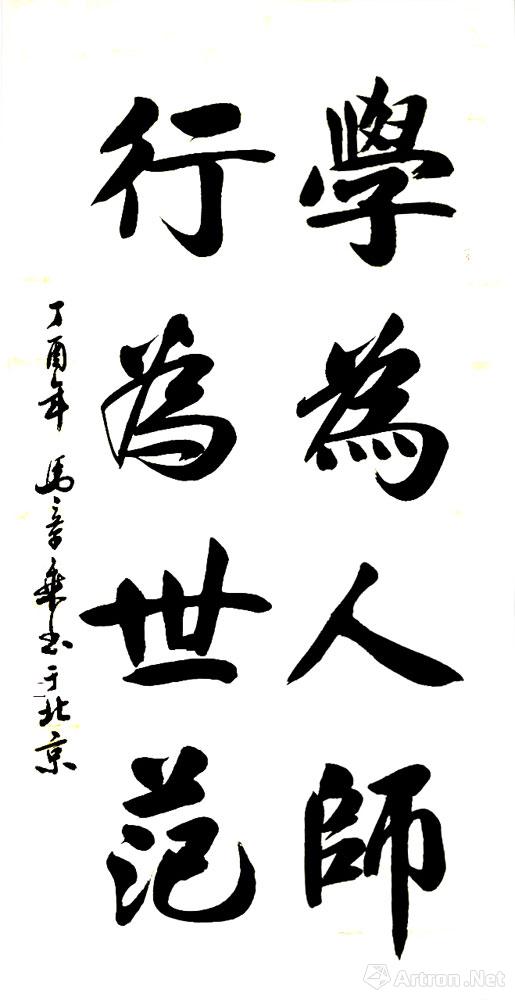 學為人師
行為世范
丁酉年 馬章乗书于北京
Artron.Net